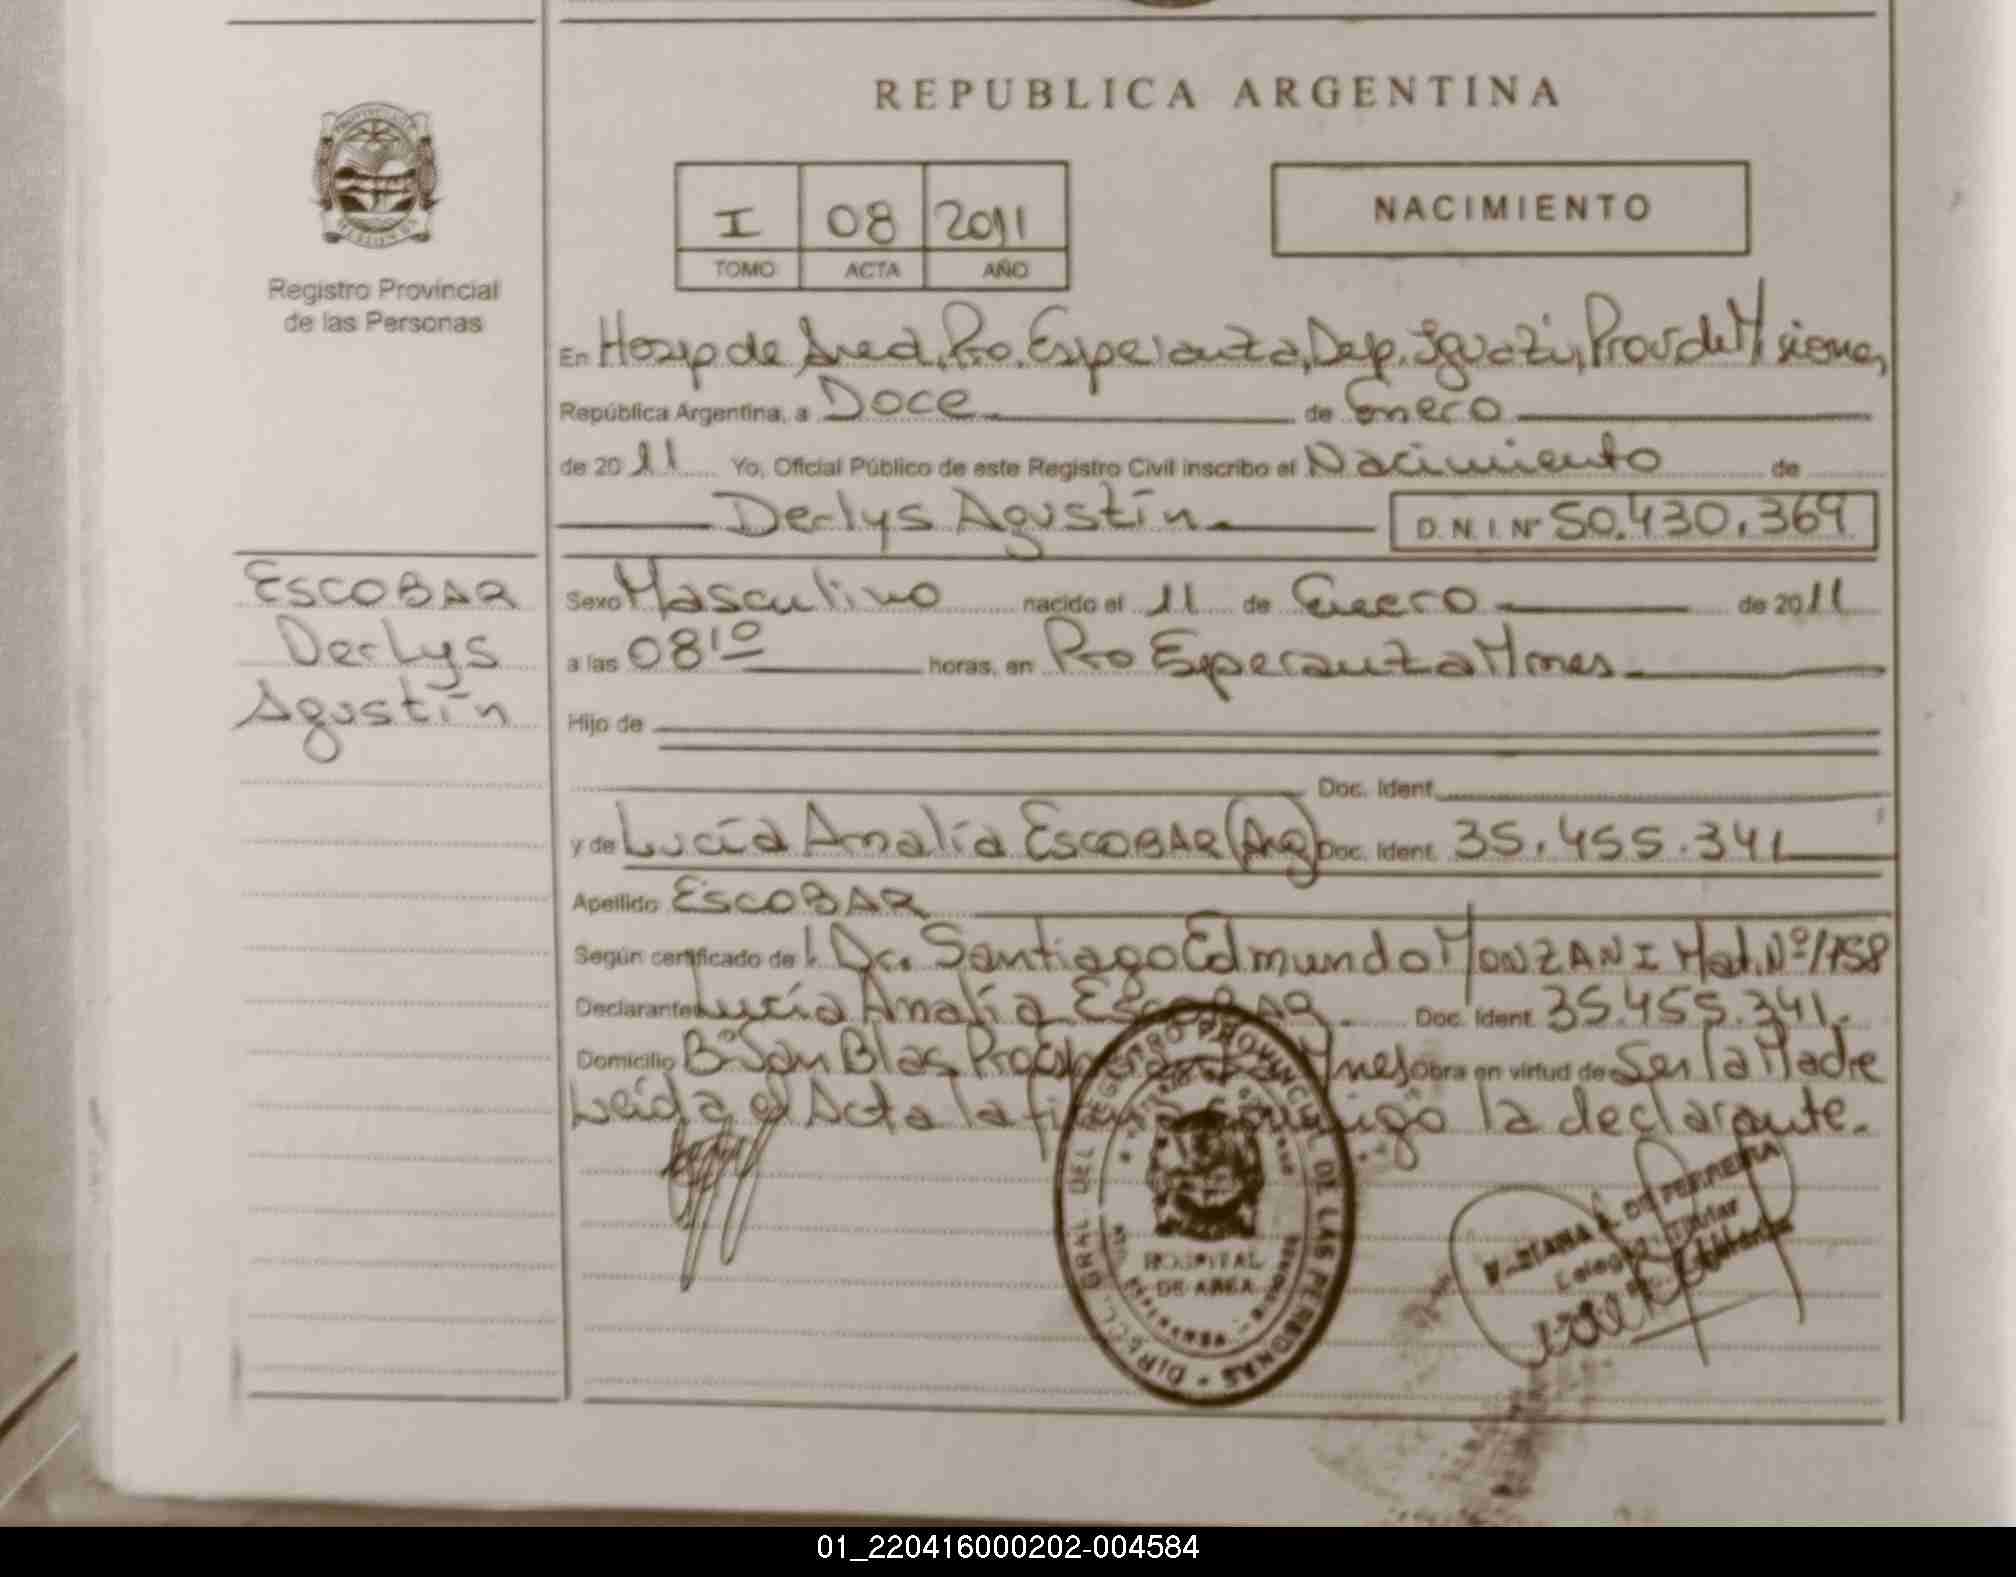 REPUBLICA ARGENTINA
NACIMIENTO
I 08 2011
TOMO ACTA AÑO
Registro Provincial
de las Personas
En Hosp de Area, Pto. Esperanza, Dep. Iguazú, Prov de Misiones,
República Argentina, a Doce de Enero
de 2011 Yo, Oficial Público de este Registro Civil inscribo el Nacimiento de
Derlys Agustín D.N.I. Nº 50.430.369
ESCOBAR
Derlys
Agustín
Sexo Masculino nacido el 11 de Enero de 2011
a las 08¹⁰ horas, en Pto Esperanza Mnes
Hijo de
Doc. Ident.
y de Lucía Analía ESCOBAR (Arg) Doc. Ident. 35.455.341
Apellido ESCOBAR
Según certificado de l Dr. Santiago Edmundo MONZANI Mat. Nº 1758
Declarante Lucía Analía ESCOBAR. Doc. Ident. 35.455.341.
Domicilio Bº San Blas Mnes Obra en virtud de Ser la Madre
Leída el Acta la firma conmigo la declarante.
DIRECC. GRAL. DEL REGISTRO PROVINCIAL DE LAS PERSONAS
HOSPITAL
DE AREA
DE FERREYRA
Titular
01_220416000202-004584